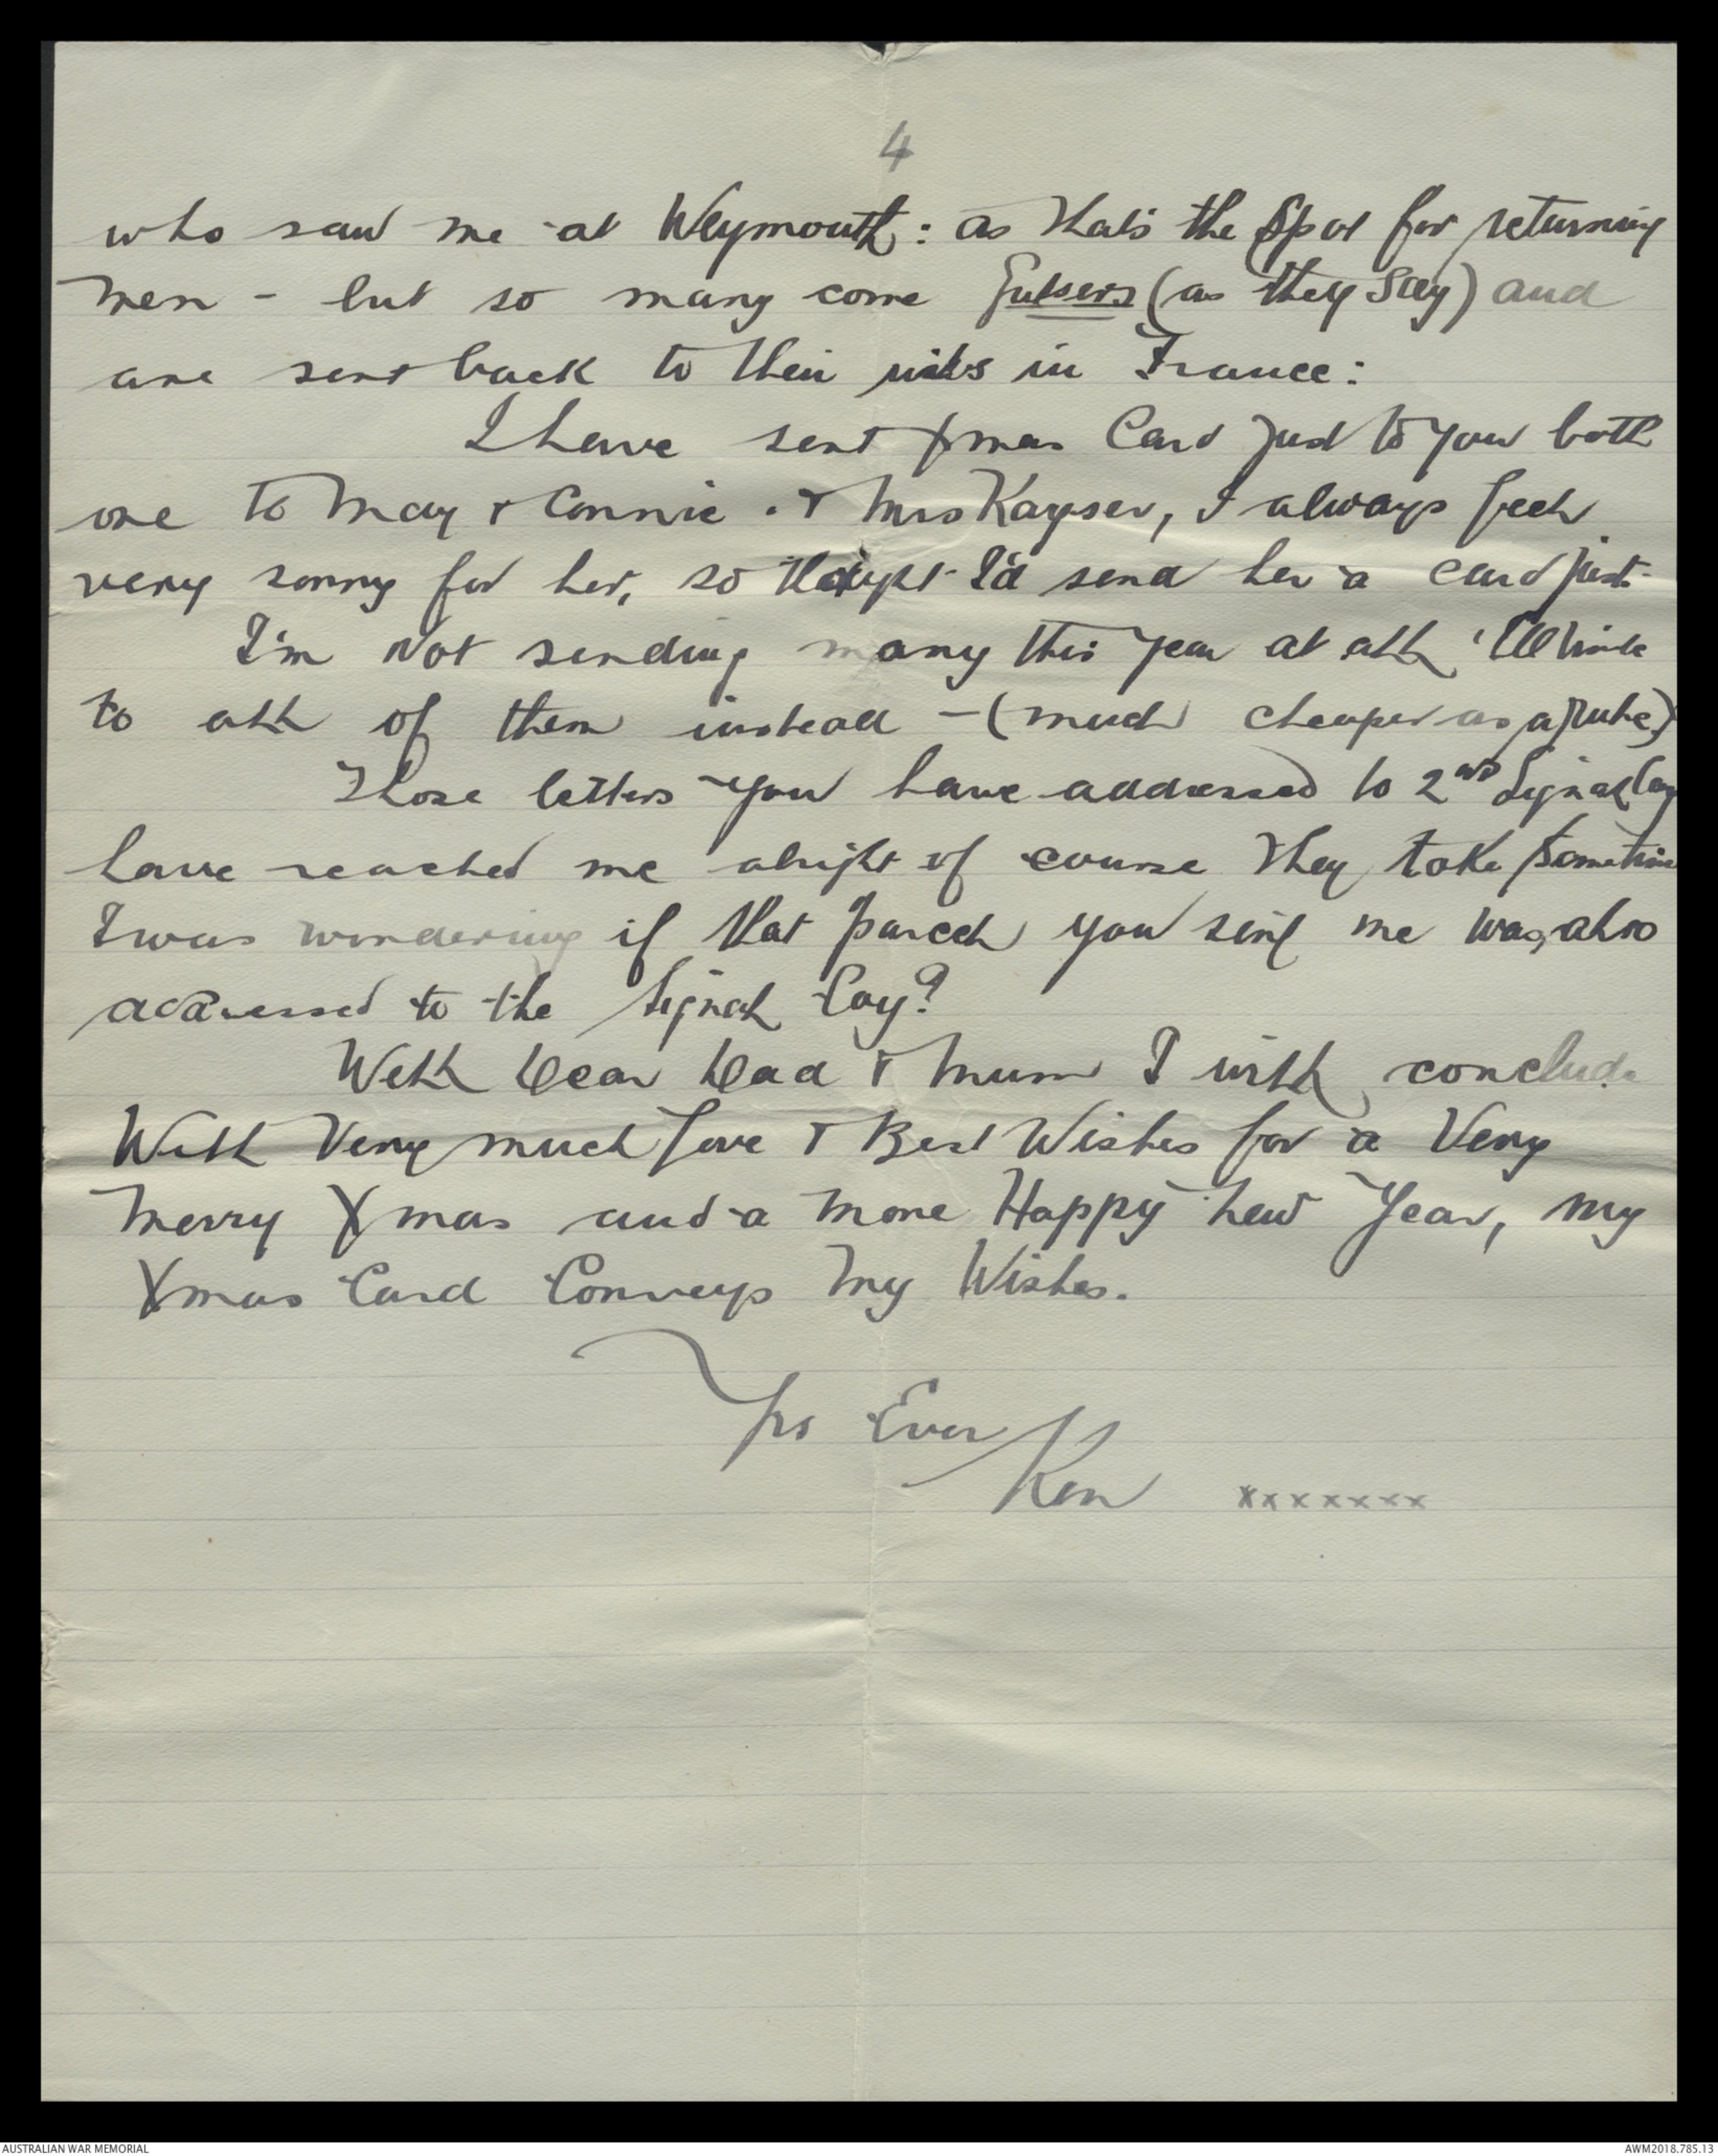 4
who saw me at Weymouth: as that's the spot for returning
men - but so many come Gutsers (as they say) and
are sent back to their units in France:
I have sent Xmas Card just to you both
one to May & Connie. & Mrs Kayser, I always feel
very sorry for her, so thought I'd send her a card just.
I'm not sending many this year at all, I'll write
to all of them instead - (much cheaper as a rule)
Those letters you have addressed to 2nd Signal Coy
have reached me alright of course they take sometime
I was wondering if that parcel you sent me was also
addressed to the Signal Coy?
Well Dear Dad & Mum I will conclude
With Very much love & Best Wishes for a Very
Merry Xmas and a more Happy New Year, my
Xmas Card Conveys My Wishes.
Yrs Ever
Ken xxxxxxx
AUSTRALIAN WAR MEMORIAL AWM2018.785.13